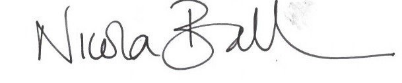 Nicola Ball